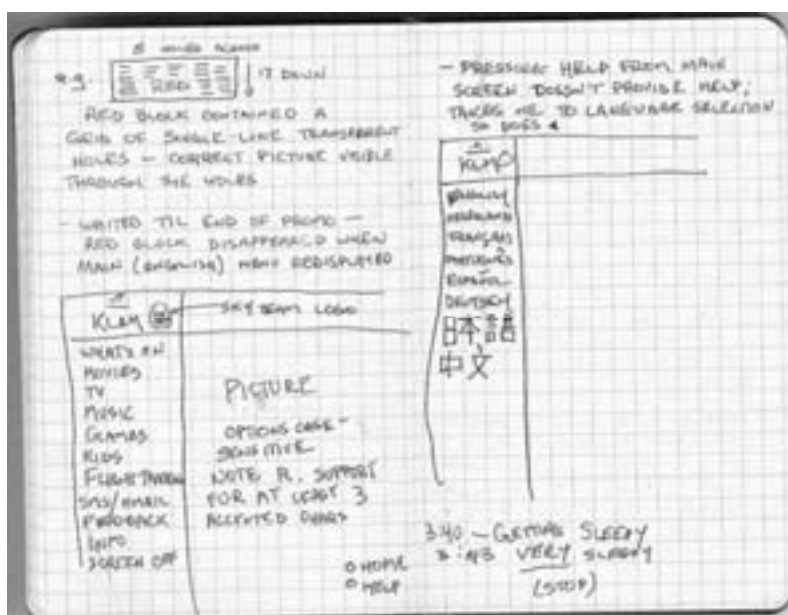 8 HOLES ACROSS
e.g.
RED
17 DOWN
RED BLOCK CONTAINED A
GRID OF SINGLE-LINE TRANSPARENT
HOLES – CORRECT PICTURE VISIBLE
THROUGH THE HOLES
- WAITED TIL END OF PROMO –
RED BLOCK DISAPPEARED WHEN
MAIN (ENGLISH) MENU REDISPLAYED
KLM
SKYTEAM LOGO
WHAT'S ON
MOVIES
TV
MUSIC
GAMES
KIDS
FLIGHT TRACKING
SMS/EMAIL
FEEDBACK
INFO
SCREEN OFF
PICTURE
OPTIONS CASE-
SENSITIVE
NOTE R. SUPPORT
FOR AT LEAST 3
ACCENTED CHARS
HOME
HELP
- PRESSING HELP FROM MAIN
SCREEN DOESN'T PROVIDE HELP;
TAKES ME TO LANGUAGE SELECTION
SO DOES
KLM
ENGLISH
NEDERLANDS
FRANÇAIS
PORTUGUÊS
ESPAÑOL
DEUTSCH
日本語
中文
3:40 – GETTING SLEEPY
3:43 VERY SLEEPY
(STOP)